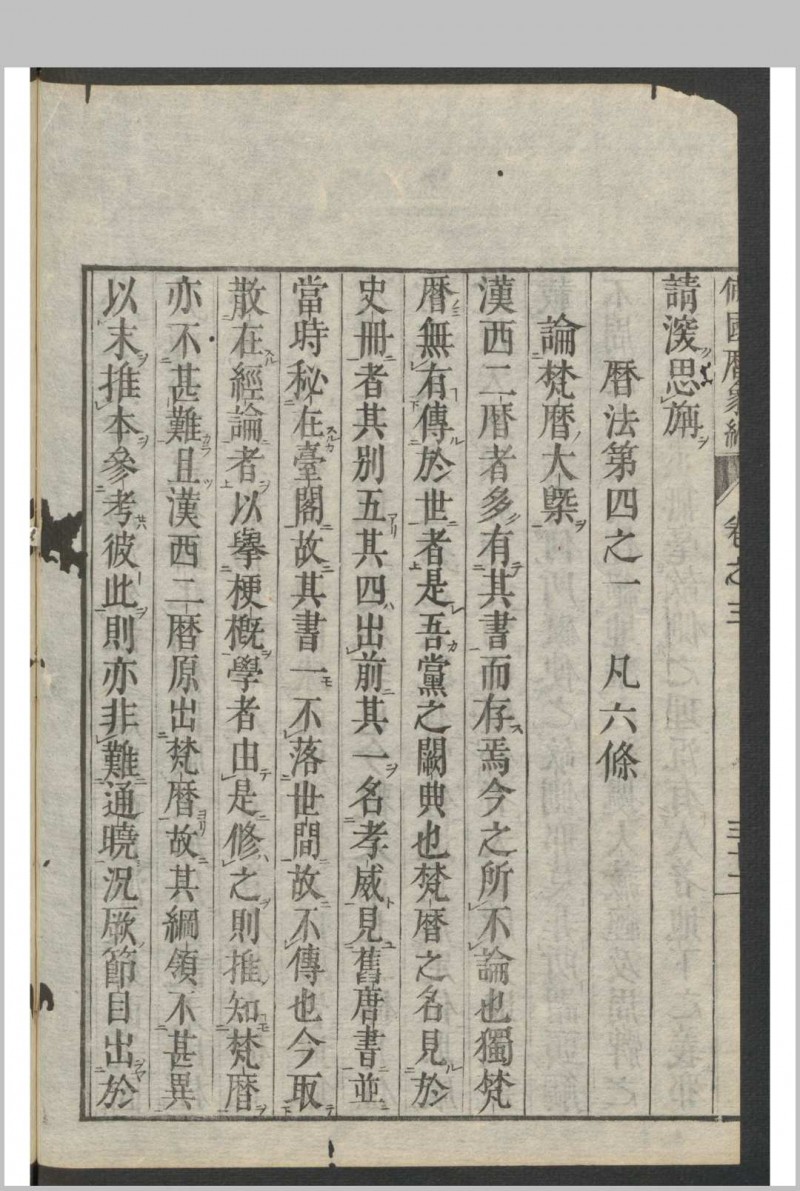 國曆象編 卷之三
請深思旃
曆法第四之一 凡六條
論梵曆大槩
漢西二曆者多有其書而存焉今之所不論也獨梵
曆無有傳於世者是吾黨之闕典也梵曆之名見於
史冊者其別五其四出前其一名孝威見舊唐書並
當時秘在臺閣故其書一不落世間故不傳也今取
散在經論者以擧梗概學者由是修之則推知梵曆
亦不甚難且漢西二曆原出梵曆故其綱領不甚異
以末推本參考彼此則亦非難通曉況厥節目出於